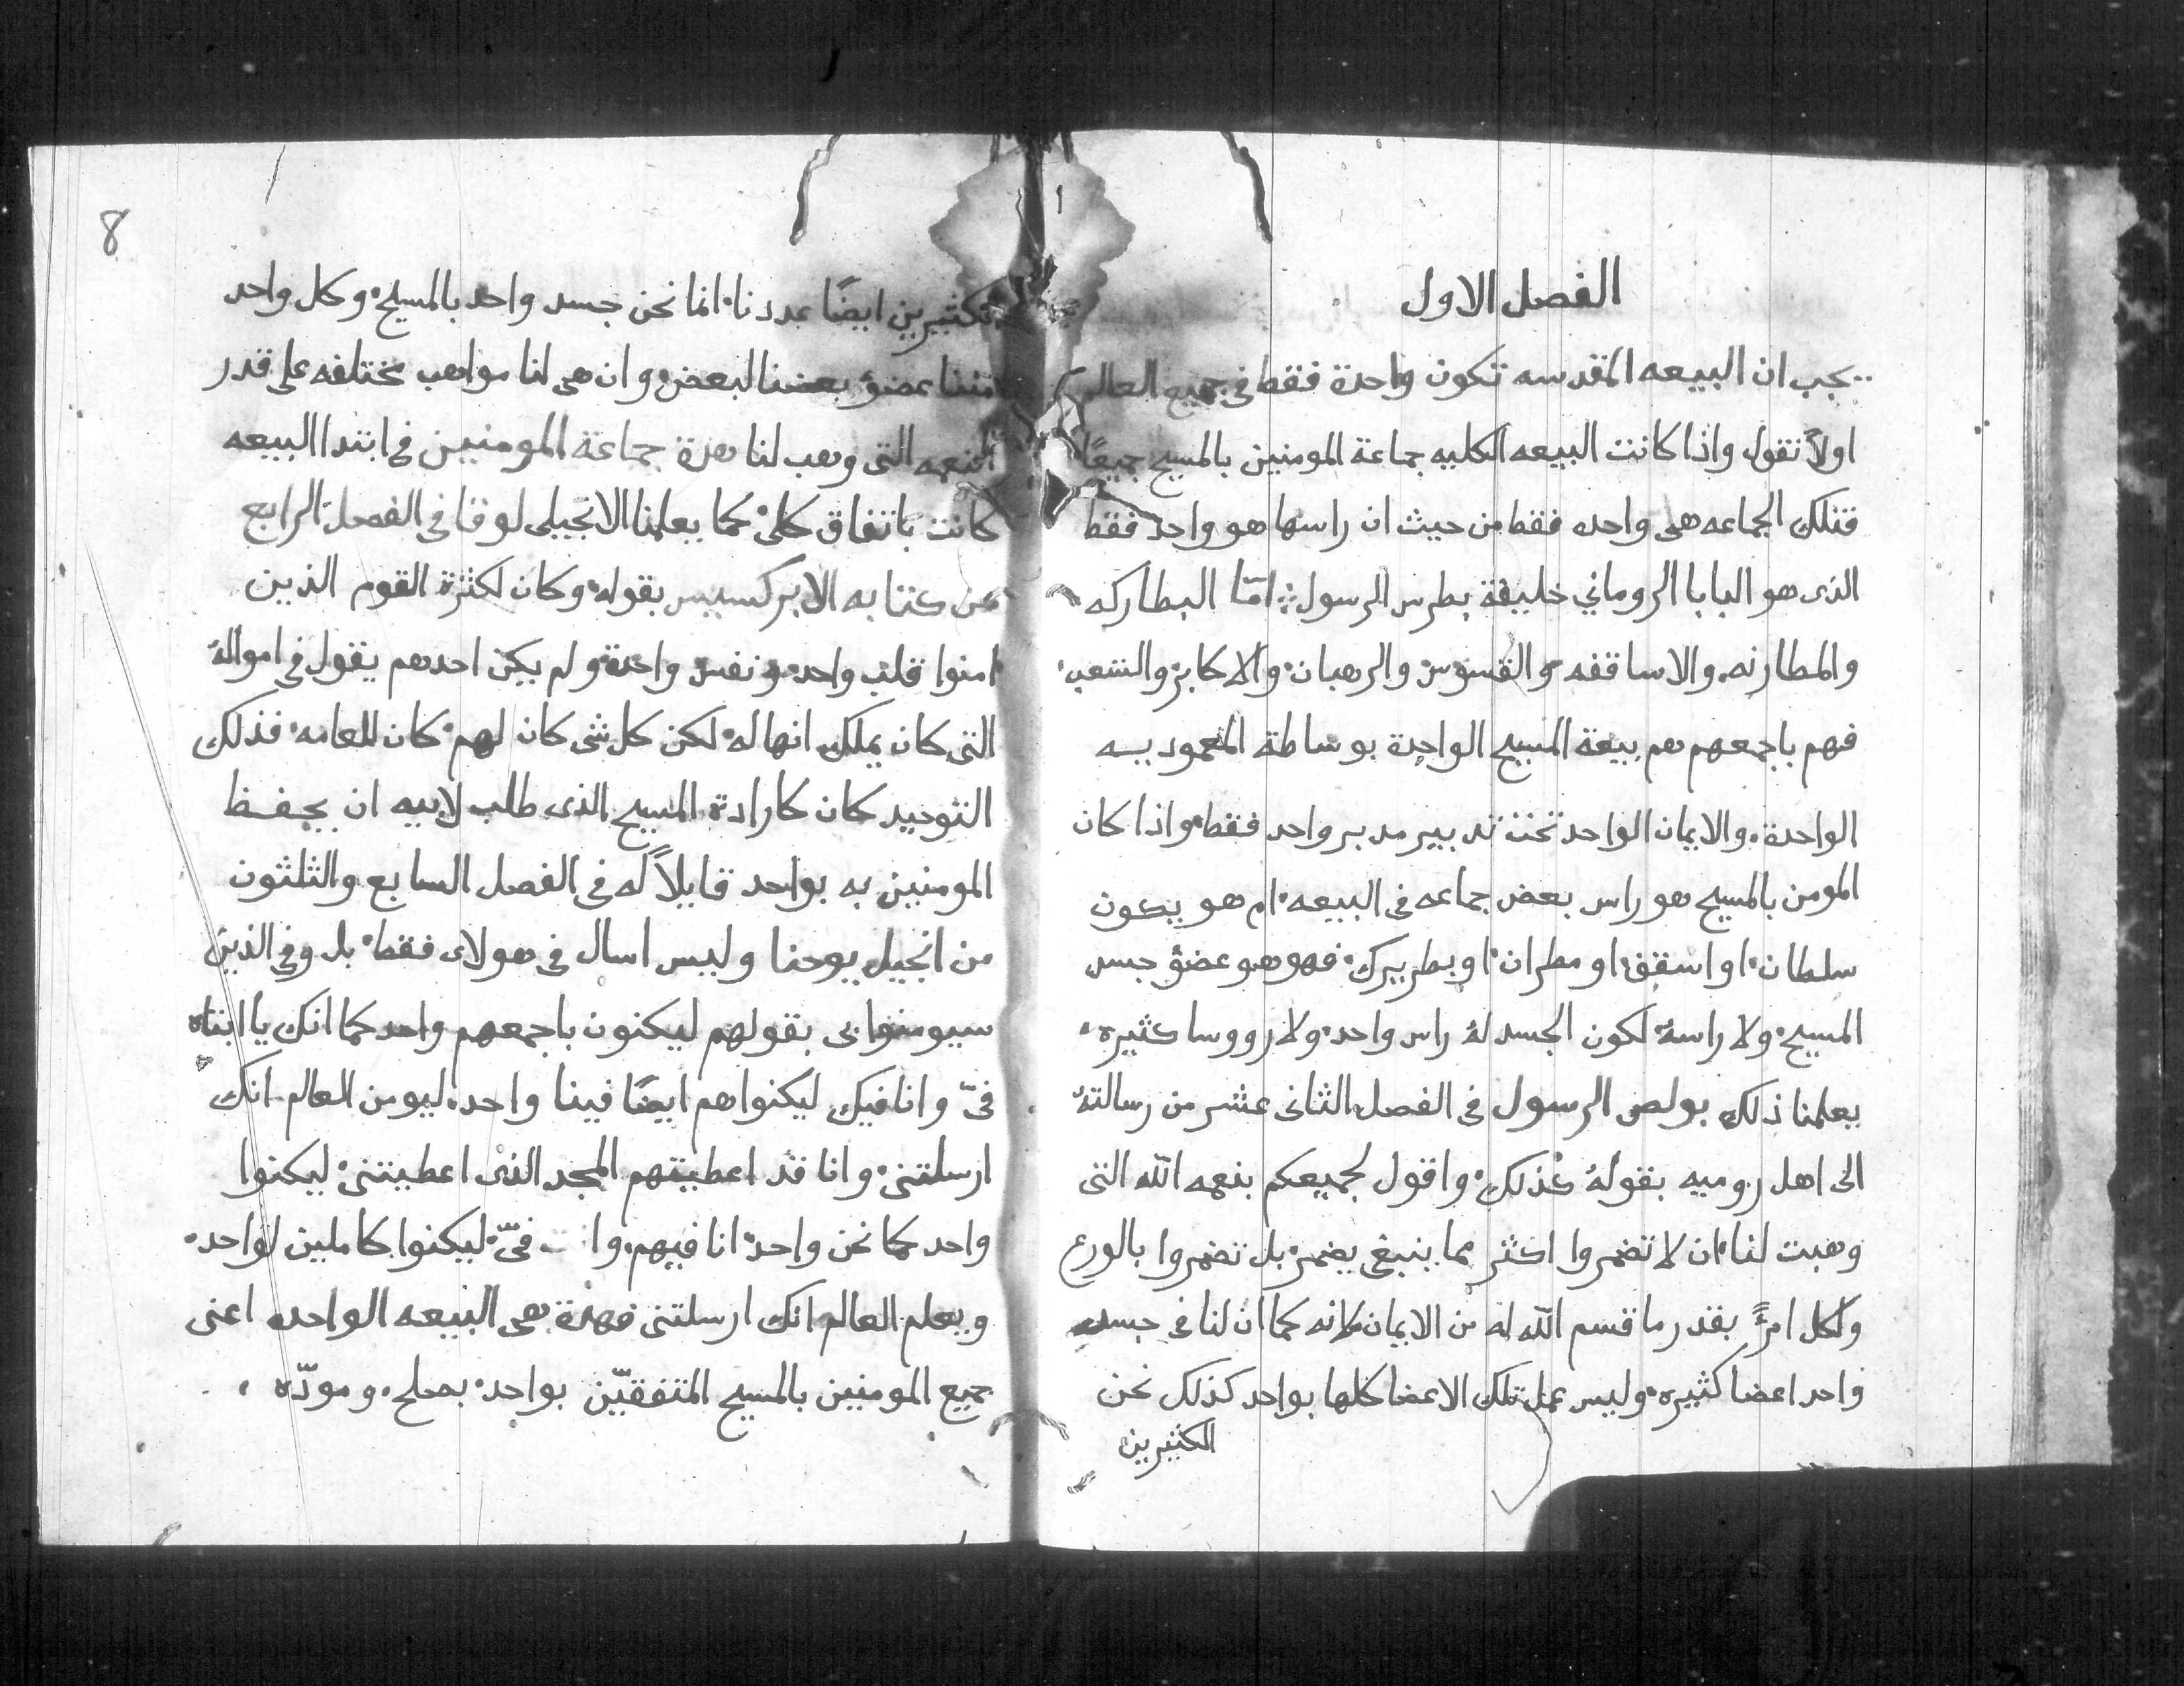 الفصل الاول
يجب ان البيعه المقدسه تكون واحدة فقط في جميع العالم
اولاً نقول واذا كانت البيعه الكليه جماعة المومنين بالمسيح جميعًا
فتلك الجماعه هى واحده فقط من حيث ان راسها هو واحد فقط
الذى هو البابا الروماني خليفة بطرس الرسول امّا البطاركه
والمطارنه والاساقفه والقسوس والرهبان والاكابر والشعب
فهم باجمعهم هم بيعة المسيح الواحدة بوساطة المعموديه
الواحدة والايمان الواحد تحت تدبير مدبر واحد فقط واذا كان
المومن بالمسيح هو راس بعض جماعه فى البيعه ام هو يكون
سلطان او اسقف او مطران او بطريرك فهو هو عضؤ جسد
المسيح ولا راسهُ لكون الجسد لهُ راس واحد ولا رووسا كثيره
يعلمنا ذلك بولص الرسول فى الفصل الثانى عشر من رسالتهُ
الى اهل روميه بقولهُ كذلك واقول لجميعكم بنعمه الله التى
وهبت لنا ان لا تضمروا اكثر مما ينبغي يضمر بل تضمروا بالورع
ولكل امرءً بقدر ما قسم الله له من الايمان لانه كما ان لنا فى جسد
واحد اعضا كثيره وليس عمل تلك الاعضا كلها بواحد كذلك نحن
الكثيرين
8
الكثيرين ايضًا عددنا انما نحن جسد واحد بالمسيح وكل واحد
مننا عضؤ بعضنا لبعض وان هى لنا مواهب مختلفه على قدر
النعمه التى وهب لنا هدة جماعة المومنيين فى ابتدا البيعه
كانت باتفاق كلى كما يعلمنا الانجيلى لوقا فى الفصل الرابع
من كتابه الابركسيس بقوله وكان لكثرة القوم الذين
امنوا قلب واحد ونفس واحدة ولم يكن احدهم يقول فى اموالهُ
التى كان يملك انها له لكن كل شى كان لهم كان للعامه فذلك
التوحيد كان كارادة المسيح الذى طلب لابيه ان يحفظ
المومنيين به بواحد قايلاً له فى الفصل السابع والثلثون
من انجيل يوحنا وليس اسال فى هولاى فقط بل وفى الذين
سيومنوا بى بقولهم ليكنون باجمعهم واحد كما انك يا ابتاه
فىّ وانا فيك ليكنوا هم ايضًا فينا واحد ليومن العالم انك
ارسلتنى وانا قد اعطيتهم المجد الذى اعطيتنى ليكنوا
واحد كما نحن واحد انا فيهم وا ت فىّ ليكنوا كاملين لواحد
ويعلم العالم انك ارسلتنى فهدة هى البيعه الواحده اعنى
جميع المومنين بالمسيح المتفقيّن بواحد بصلح ومودّه